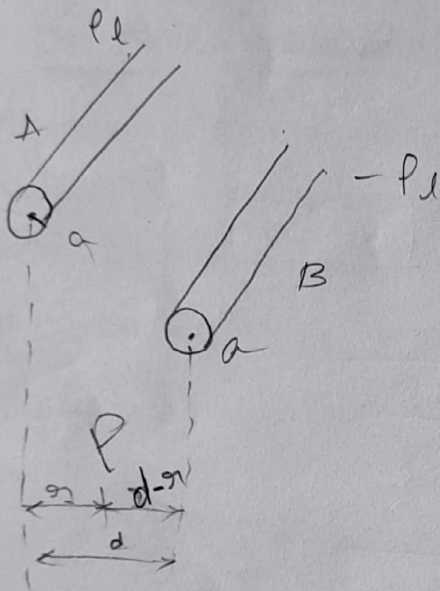 ρl
A
a
- ρl
B
a
P
r
d-r
d